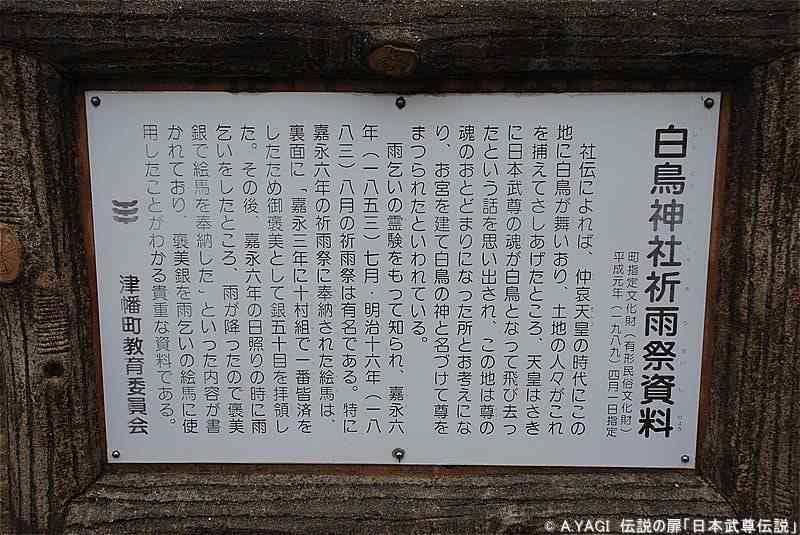 白鳥神社祈雨祭資料
町指定文化財（有形民俗文化財）
平成元年（一九八九）四月一日指定
社伝によれば、仲哀天皇の時代にこの
地に白鳥が舞いおり、土地の人々がこれ
を捕えてさしあげたところ、天皇はさき
に日本武尊の魂が白鳥となって飛び去っ
たという話を思い出され、この地は尊の
魂のおとどまりになった所とお考えにな
り、お宮を建て白鳥の神と名づけて尊を
まつられたといわれている。
雨乞いの霊験をもって知られ、嘉永六
年（一八五三）七月・明治十六年（一八
八三）八月の祈雨祭は有名である。特に
嘉永六年の祈雨祭に奉納された絵馬は、
裏面に「嘉永三年に十村組で一番皆済を
したため御褒美として銀五十目を拝領し
た。その後、嘉永六年の日照りの時に雨
乞いをしたところ、雨が降ったので褒美
銀で絵馬を奉納した」といった内容が書
かれており、褒美銀を雨乞いの絵馬に使
用したことがわかる貴重な資料である。
津幡町教育委員会
© A.YAGI 伝説の扉「日本武尊伝説」